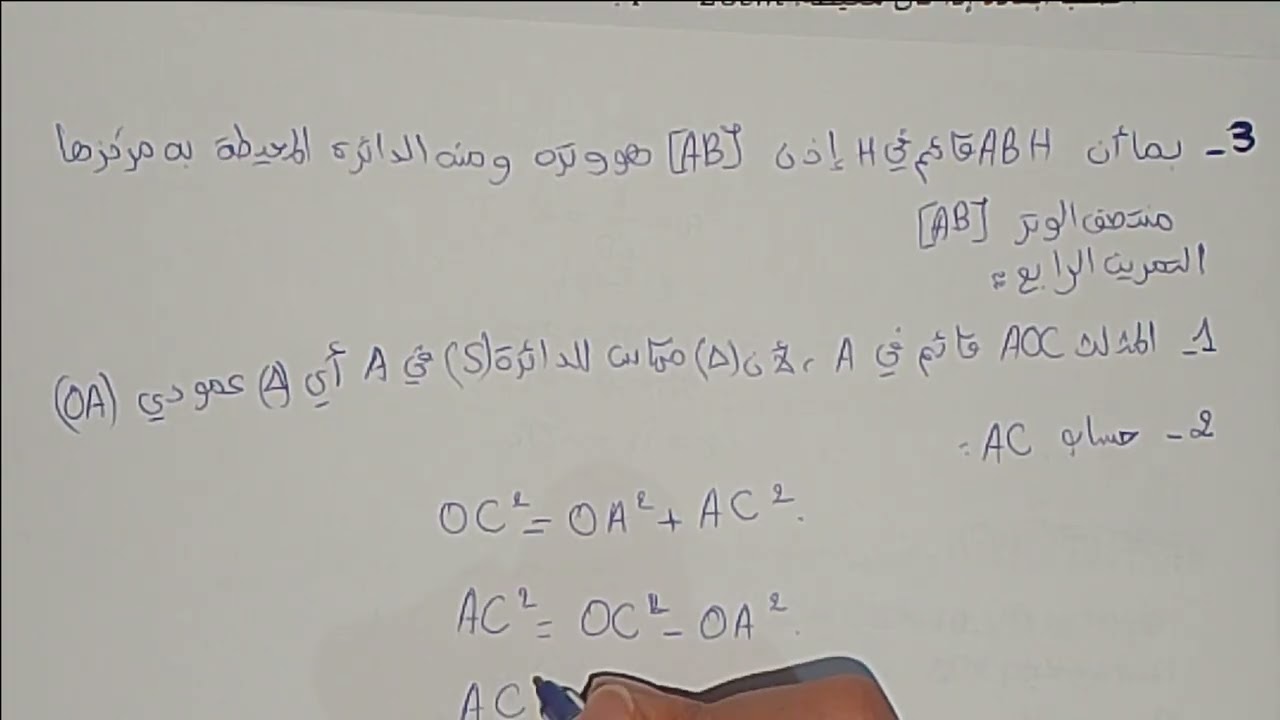 3 - بما أن ABH قائم في H إذن [AB] هو وتره ومنه الدائرة المحيطة به مركزها
منتصف الوتر [AB]
التمرين الرابع :
1 - المثلث AOC قائم في A ، لأن (Δ) مماس للدائرة (S) في A أي (Δ) عمودي (OA)
2 - حساب AC :
OC² = OA² + AC².
AC² = OC² - OA².
AC